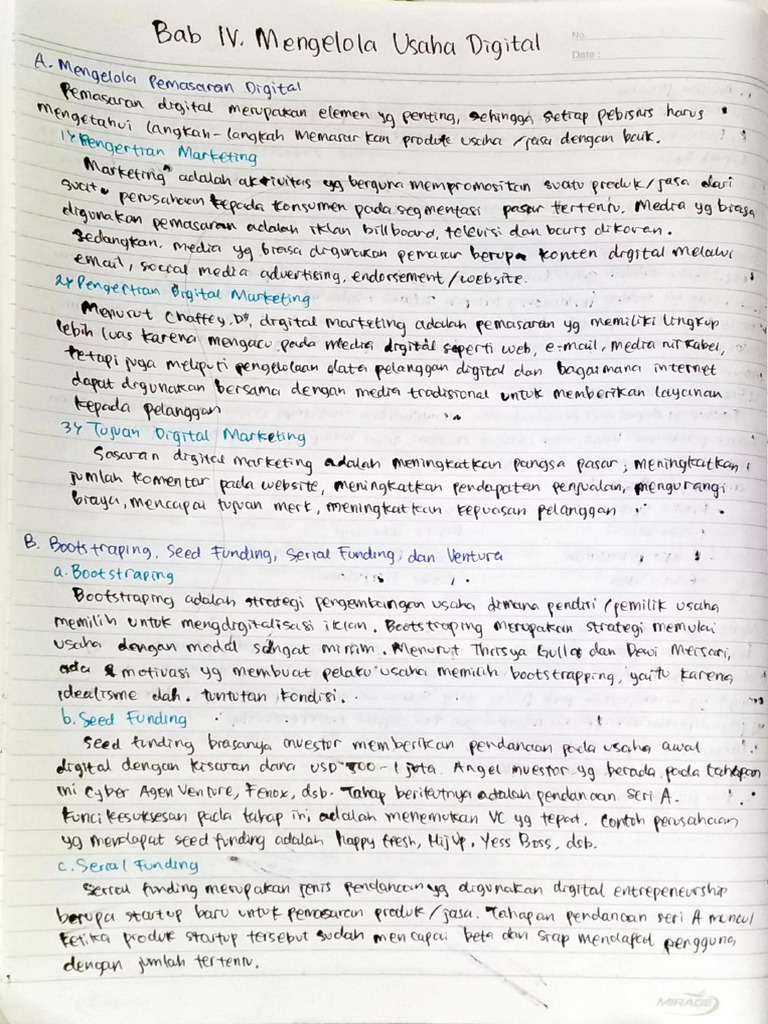 Bab IV. Mengelola Usaha Digital
No.
Date :
A. Mengelola Pemasaran Digital
Pemasaran digital merupakan elemen yg penting, sehingga setiap pebisnis harus
mengetahui langkah-langkah memasarkan produk usaha /jasa dengan baik.
1) Pengertian Marketing
Marketing adalah aktivitas yg berguna mempromosikan suatu produk/jasa dari
suatu perusahaan kepada konsumen pada segmentasi pasar tertentu. Media yg biasa
digunakan pemasaran adalah iklan billboard, televisi dan baris dikoran.
Sedangkan. media yg biasa digunakan pemasar berupa konten digital melalui
email, social media advertising, endorsement/website.
2) Pengertian Digital Marketing
Menurut Chaffey, D, digital marketing adalah pemasaran yg memiliki lingkup
lebih luas karena mengacu pada media digital seperti web, e-mail, media nirkabel,
tetapi juga meliputi pengelolaan data pelanggan digital dan bagaimana internet
dapat digunakan bersama dengan media tradisional untuk memberikan layanan
kepada pelanggan
3) Tujuan Digital Marketing
Sasaran digital marketing adalah meningkatkan pangsa pasar, meningkatkan
jumlah komentar pada website, meningkatkan pendapatan penjualan, mengurangi
biaya, mencapai tujuan merk, meningkatkan kepuasan pelanggan
B. Bootstraping, Seed Funding, Serial Funding, dan Ventura
a. Bootstraping
Bootstraping adalah strategi pengembangan usaha dimana pendiri /pemilik usaha
memilih untuk mengdigitalisasi iklan. Bootstraping merupakan strategi memulai
usaha dengan modal sangat minim. Menurut Thrisya Gullas dan Dewi Mersari,
ada 2 motivasi yg membuat pelaku usaha memilih bootstrapping, yaitu karena
idealisme dah. tuntutan kondisi.
b. Seed Funding
Seed funding biasanya investor memberikan pendanaan pada usaha awal
digital dengan kisaran dana USD 500-1 jota. Angel investor yg berada pada tahapan
ini Cyber Agen Venture, Fenox, dsb. Tahap beritutnya adalah pendanaan seri A.
Kunci kesuksesan pada tahap ini adalah menemukan VC yg tepat. Contoh perusahaan
yg mendapat seed funding adalah happy fresh, HijUp, Yess Boss, dsb.
c. Serial Funding
Serial funding merupakan jenis pendanaan yg digunakan digital entrepeneurship
berupa startup baru untuk pemasaran produk/jasa. Tahapan pendanaan seri A muncul
ketika produk startup tersebut sudah mencapai beta dan siap mendapat pengguna
dengan jumlah tertentu.
MIRAGE